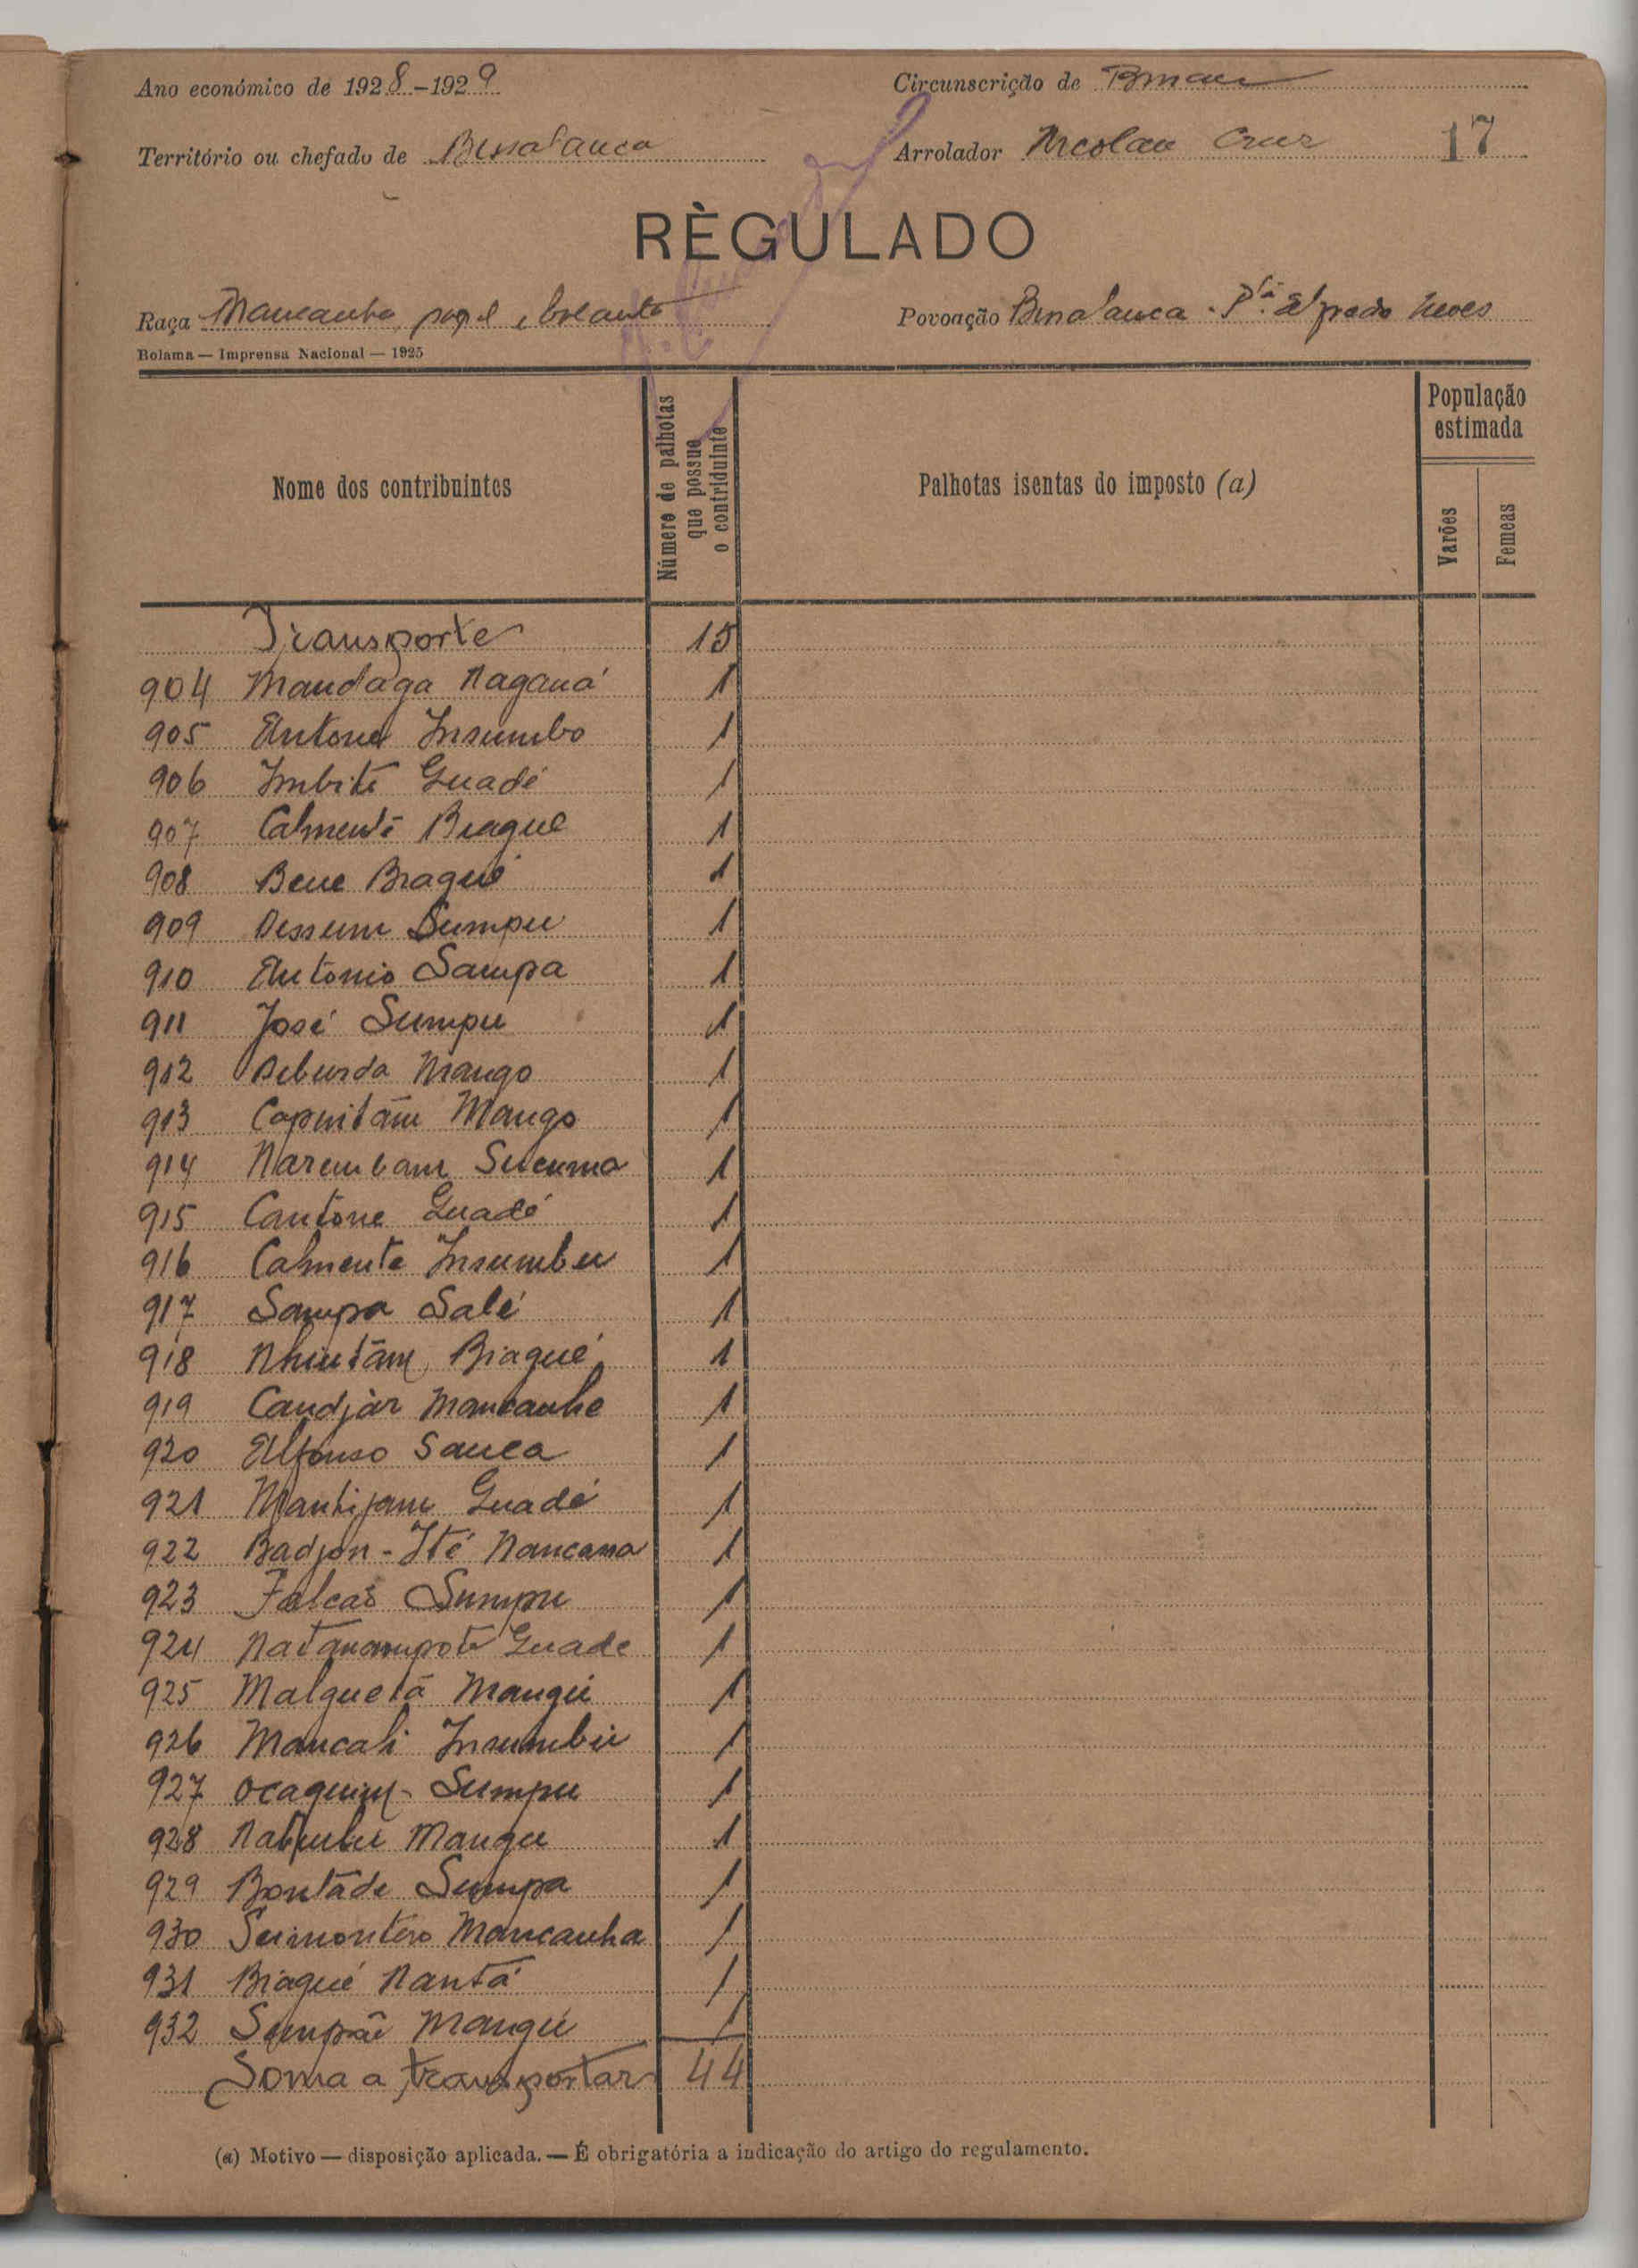 Ano económico de 1928-1929
Circunscrição de Bissau
Território ou chefado de Bissalanca
Arrolador Nicolau Cruz 17
RÈGULADO
Raça Mancanha, papel e balanta
Povoação Bissalanca - Alfredo Neves
Bolama — Imprensa Nacional — 1925
Nome dos contribuintes
Número de palhotas
que possue
o contriduinte
Palhotas isentas do imposto (a)
População
estimada
Varões
Femeas
Transporte 15
904 Mandaga Naganá 1
905 Antone Insumbo 1
906 Imbité Guadé 1
907 Calmenté Biague 1
908 Bene Biagué 1
909 Sumpu 1
910 António Sampa 1
911 José Sumpu 1
912 Mango 1
913 Mango 1
914 Sucuma 1
915 Cantone Guadé 1
916 Calmente Insumbu 1
917 Sampa Salé 1
918 Nhintam Biagué 1
919 Candjar Mancanhe 1
920 Alfonso Sanca 1
921 Guadé 1
922 Badjon-Ité Nancana 1
923 Falcão Sumpu 1
924 Guade 1
925 Malguetá Mangú 1
926 Mancali Insumbú 1
927 Ocaquim - Sumpu 1
928 Mangu 1
929 Bontáde Sumpa 1
930 Mancanha 1
931 Biagué Nantá 1
932 Mangú 1
Soma a transportar 44
(a) Motivo — disposição aplicada. — É obrigatória a indicação do artigo do regulamento.